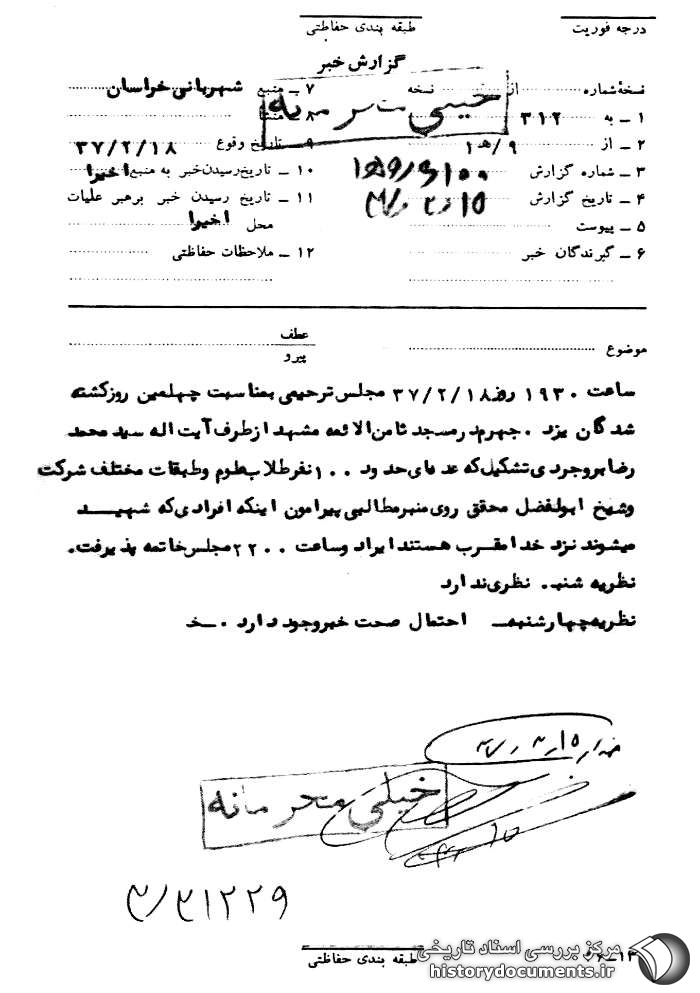 درجه فوریت
طبقه بندی حفاظتی
گزارش خبر
نسخهٔ شماره از نسخه
۱ ـ به ۳۱۲
۲ ـ از ۹/هـ۱
۳ ـ شماره گزارش
۴ ـ تاریخ گزارش
۵ ـ پیوست
۶ ـ گیرندگان خبر
۷ ـ منبع شهربانی خراسان
۸ ـ منشأ
خیلی محرمانه
۹ ـ تاریخ وقوع ۳۷/۲/۱۸
۱۰ ـ تاریخ رسیدن خبر به منبع اخیرا
۱۱ ـ تاریخ رسیدن خبر برهبر عملیات
محل اخیرا
۱۲ ـ ملاحظات حفاظتی
موضوع
عطف
پیرو
ساعت ۱۹۳۰ روز ۳۷/۲/۱۸ مجلس ترحیمی بمناسبت چهلمین روزکشته
شدگان یزد . جهرم در مسجد ثامن الائمه مشهد از طرف آیت اله سید محمد
رضا بروجردی تشکیل که عده ای حدود ۱۰۰ نفر طلاب علوم و طبقات مختلف شرکت
و شیخ ابوالفضل محقق روی منبر مطالبی پیرامون اینکه افرادی که شهید
میشوند نزد خدا مقرب هستند ایراد و ساعت ۲۲۰۰ مجلس خاتمه پذیرفت.
نظریه شنبه. نظری ندارد
نظریه چهارشنبه ـ احتمال صحت خبر وجود دارد . خ
خیلی محرمانه
طبقه بندی حفاظتی
مرکز بررسی اسناد تاریخی
historydocuments.ir